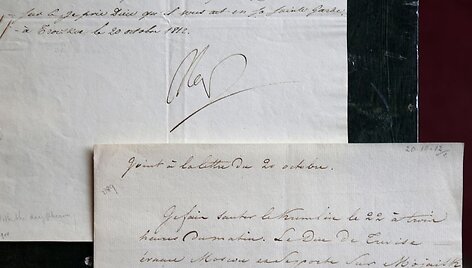 Sur ce je prie Dieu qu'il vous ait en sa Sainte Garde.
à Troitskoe le 20 octobre 1812
Nap
20-10-12
Joint à la lettre du 20 octobre.
Je fais sauter le Kremlin le 22 à trois
heures du matin. Le Duc de Trévise
évacue Moscou et se porte sur Mojaisk